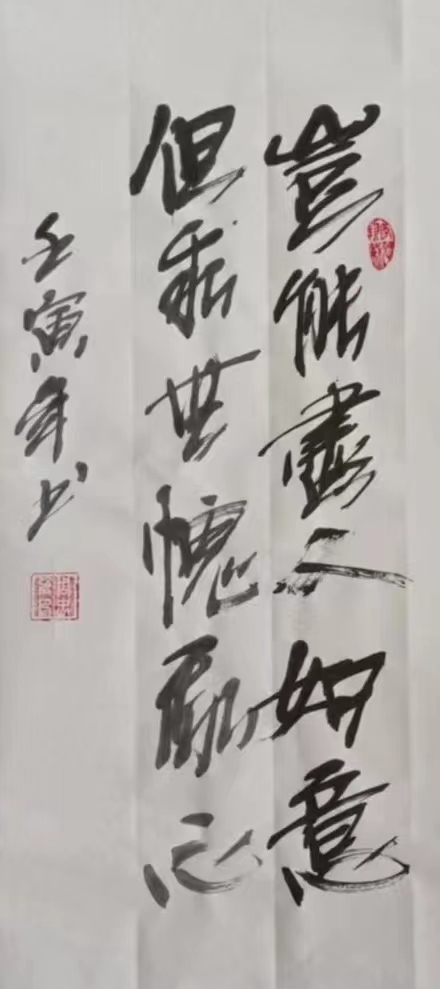 豈能盡人如意
但求無愧心
壬寅年书